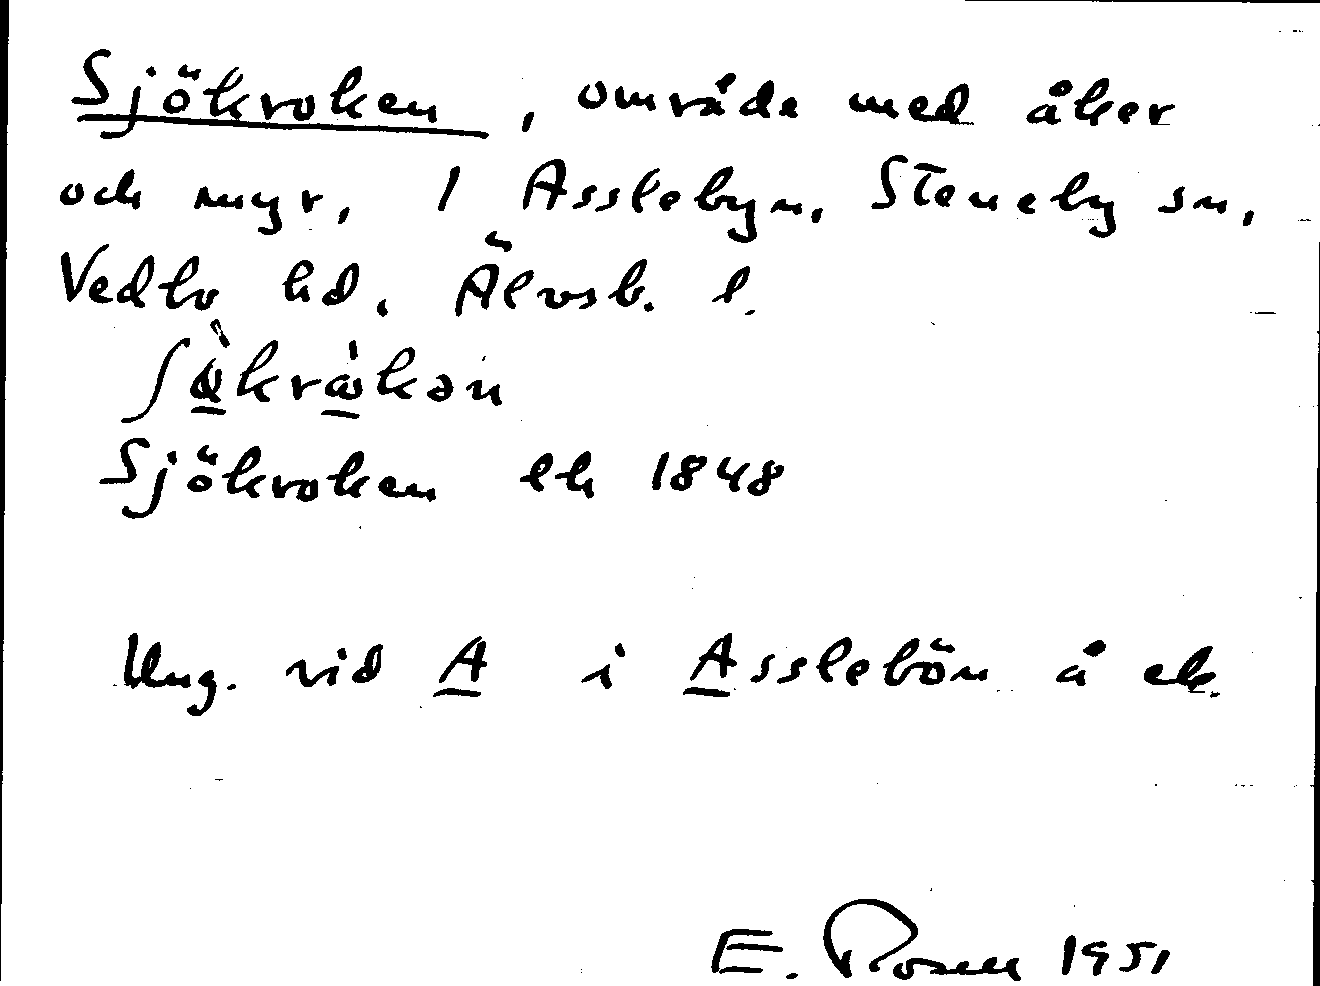 Sjökroken, område med åker
och myr, 1 Asslebyn, Steneby sn,
Vedbo hd, Älvsb. l.
Sjökroken lk 1848
Ung. vid A i Asslebön å ek.
E. Rosell 1951